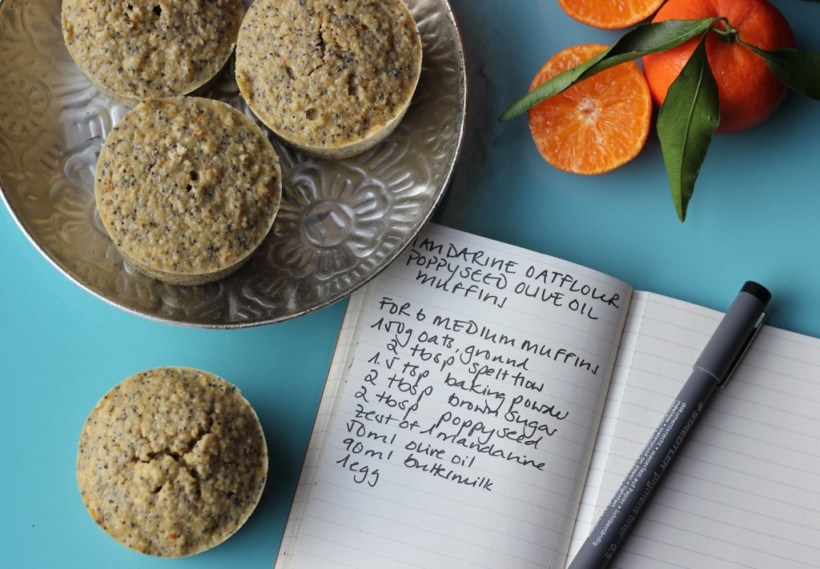 MANDARINE OATFLOUR
POPPYSEED OLIVE OIL
MUFFINS
FOR 6 MEDIUM MUFFINS
150g oats, ground
2 tbsp spelt flour
1.5 tsp baking powder
2 tbsp brown sugar
2 tbsp poppyseed
zest of 1 mandarine
50ml olive oil
90ml buttermilk
1 egg
STAEDTLER pigment liner 0.5